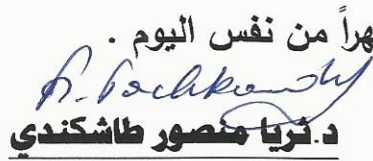 هراً من نفس اليوم .
د.ثريا منصور طاشكندي